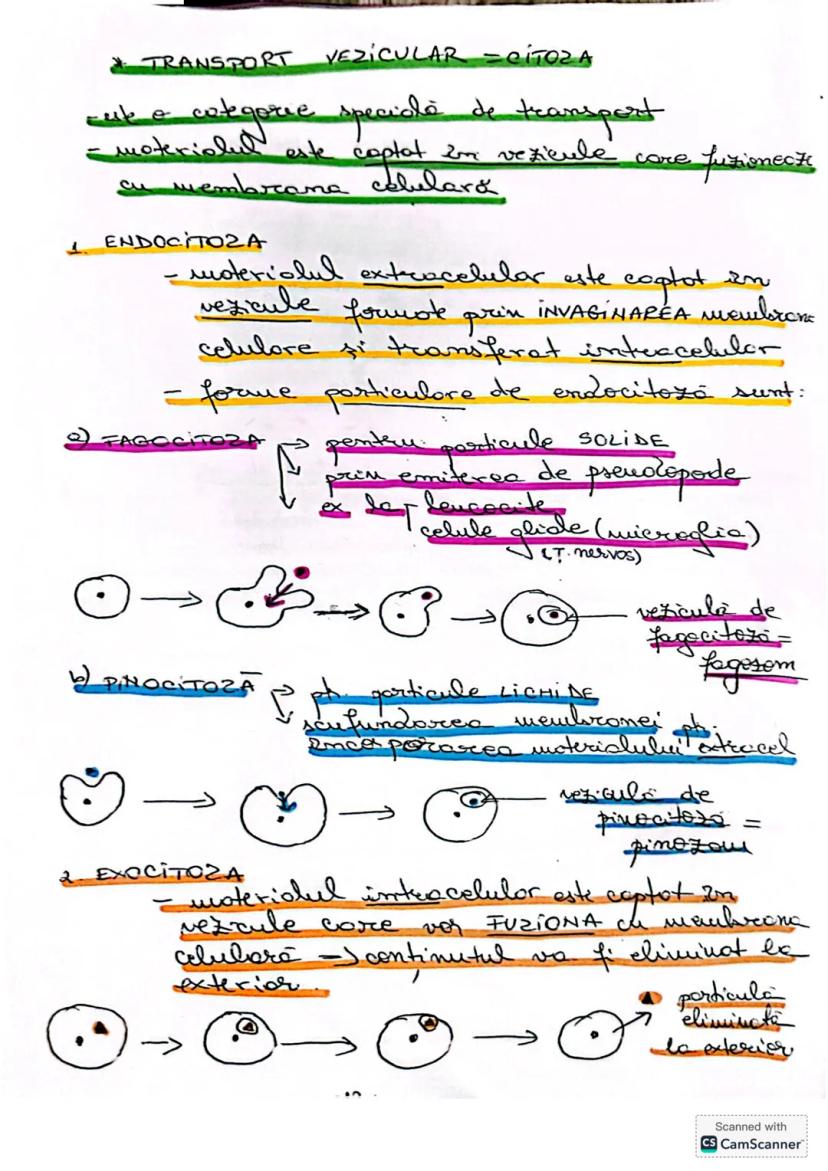 * TRANSPORT VEZICULAR = CITOZA
- este o categorie specială de transport
- materialul este captat în vezicule care fuzionează
cu membrana celulară
1. ENDOCITOZA
- materialul extracelular este captat în
vezicule formate prin INVAGINAREA membrane
celulare și transferat intracelular
- forme particulare de endocitoză sunt:
a) FAGOCITOZA → pentru particule SOLIDE
prin emiterea de pseudopode
ex la leucocite
celule gliale (microglia)
(T. nervos)
veziculă de
fagocitoză =
fagozom
b) PINOCITOZĂ → pt. particule LICHIDE
scufundarea membranei pt.
încorporarea materialului extracel
veziculă de
pinocitoză =
pinozom
2. EXOCITOZA
- materialul intracelular este captat în
vezicule care vor FUZIONA cu membrana
celulară → conținutul va fi eliminat la
exterior.
particulă
eliminată
la exterior
Scanned with
CS CamScanner